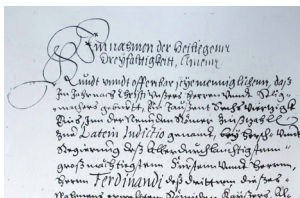 Im nahmen der heiligenn
Dreyfaltigkeit, Amenn
Kundt unndt offenbar seye menniglichenn, daß
Im Jahr nach Christi unsers Herrn unndt
machers geburtt, Ein Tausent Sechs viertzigk
der Römer Zinszahll
zue Latein Indictio genand, bey Hersch- unnd
Regierung deß Allerdurchleuchtigstenn
großmächtigstenn Fürstenn unnd Herrnn,
Herrn Ferdinandi deß dritten dieses
Nahmens erwehlten Römischen Kaysers,